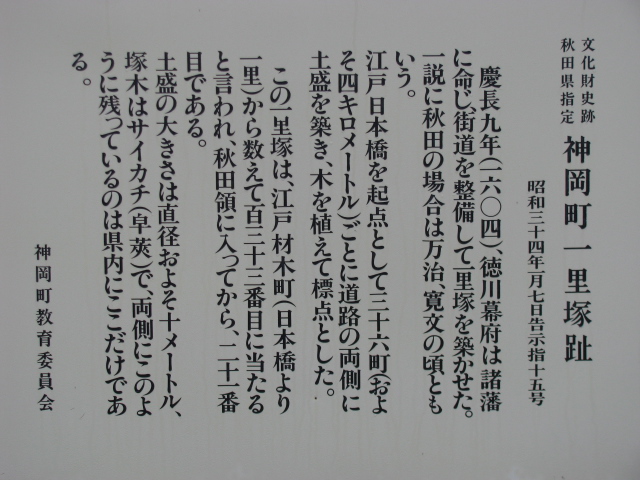 文化財史跡
秋田県指定
神岡町一里塚趾
昭和三十四年一月七日告示指十五号
慶長九年(一六〇四)、徳川幕府は諸藩
に命じ、街道を整備して一里塚を築かせた。
一説に秋田の場合は万治、寛文の頃とも
いう。
江戸日本橋を起点として三十六町(およ
そ四キロメートル)ごとに道路の両側に
土盛を築き、木を植えて標点とした。
この一里塚は、江戸材木町(日本橋より
一里)から数えて百三十三番目に当たる
と言われ、秋田領に入ってから、二十一番
目である。
土盛の大きさは直径およそ十メートル、
塚木はサイカチ(皁莢)で、両側にこのよ
うに残っているのは県内にここだけであ
る。
神岡町教育委員会